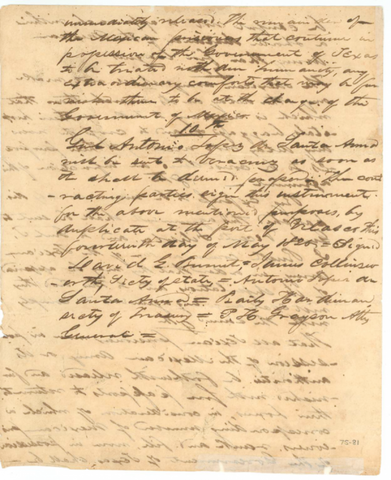 immediately released. The remainder of
the Mexican prisoners that continue in
possession of the Government of Texas
to be treated with due humanity, any
extraordinary comforts that may be fur
to be at the charge of the
Government of Mexico.
10th
Genl Antonio Lopez de Santa Anna
will be sent to Veracruz as soon as
it shall be deemed proper. The cont
racting parties sign this instrument
for the above mentioned purposes, by
duplicate at the port of Velasco this
fourteenth day of May 1836 = Signed
David G Burnet = James Collinsw
orth, Secty of State = Antonio Lopez de
Santa Anna = Baily Hardiman
secty of Treasury = P. H. Grayson Atty
General =